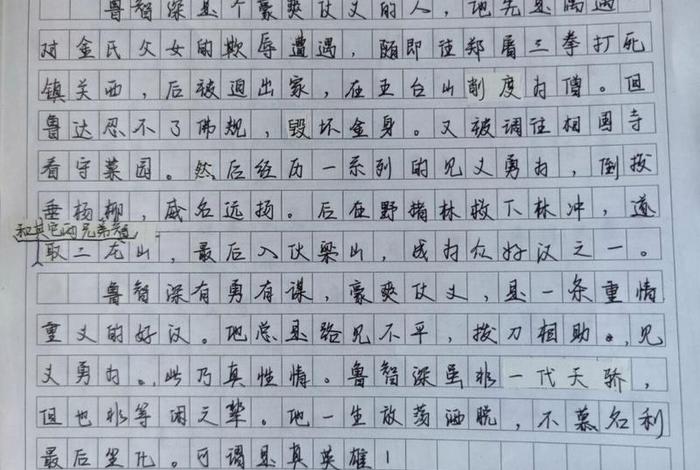 鲁智深是个豪爽仗义的人，他先是偶遇
对金氏父女的欺辱遭遇，随即往郑屠三拳打死
镇关西，后被迫出家，在五台山削度为僧。但
鲁达忍不了佛规，毁坏金身。又被调往相国寺
看守菜园。然后经历一系列的见义勇为，倒拔
垂杨柳，威名远扬。后在野猪林救下林冲，遂
和其它的兄弟智
取二龙山，最后入伙梁山，成为众好汉之一。
鲁智深有勇有谋，豪爽仗义，是一条重情
重义的好汉。他总是路见不平，拔刀相助。见
义勇为。此乃真性情。鲁智深虽非一代天骄，
但也非等闲之辈。他一生放荡洒脱，不慕名利
最后坐化。可谓是真英雄！